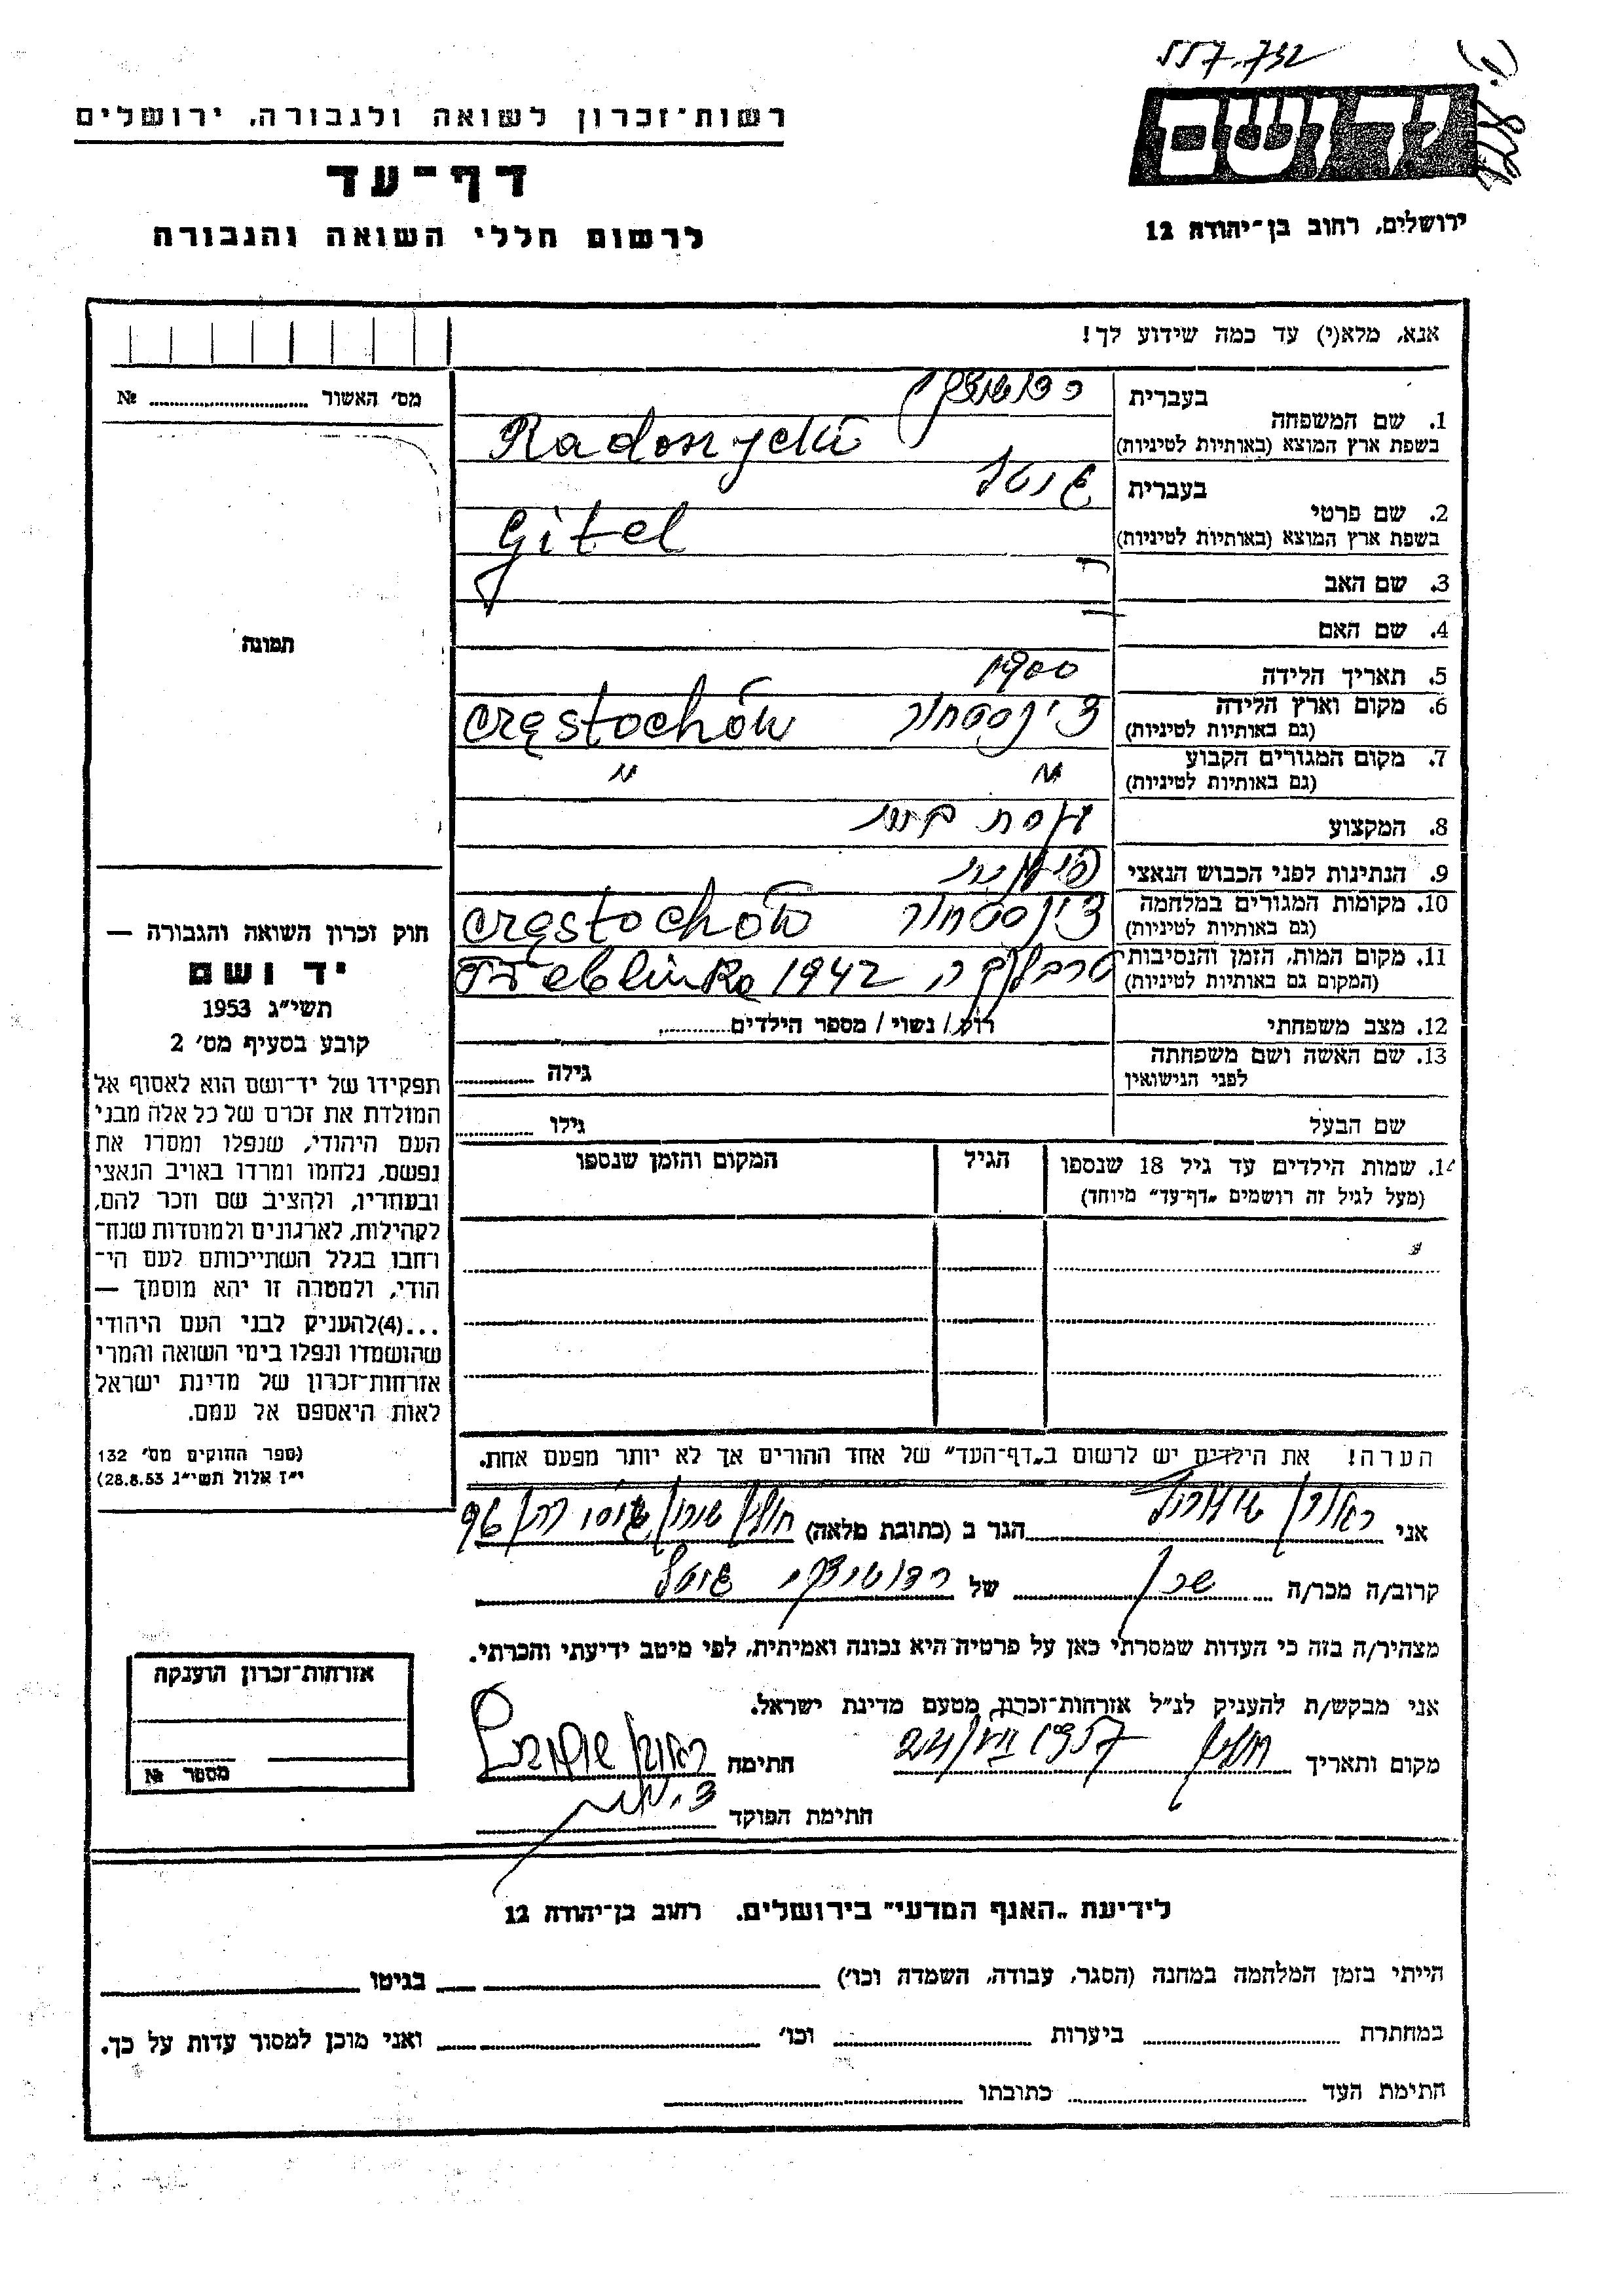 557.732
יד ושם
ירושלים, רחוב בן־יהודה 12
רשות־זכרון לשואה ולגבורה, ירושלים
דף־עד
לרשום חללי השואה והגבורה
אנא, מלא(י) עד כמה שידוע לך!
מס׳ האשור № ....................
תמונה
1. שם המשפחה
בעברית
בשפת ארץ המוצא (באותיות לטיניות) Radoszycki
2. שם פרטי
בעברית גיטל
בשפת ארץ המוצא (באותיות לטיניות) Gitel
3. שם האב
4. שם האם
5. תאריך הלידה 1900
6. מקום וארץ הלידה צ׳נסטחוב Częstochów
(גם באותיות לטיניות)
7. מקום המגורים הקבוע " "
(גם באותיות לטיניות)
8. המקצוע עקרת בית
9. הנתינות לפני הכבוש הנאצי
10. מקומות המגורים במלחמה צ׳נסטחוב Częstochów
(גם באותיות לטיניות)
11. מקום המות, הזמן והנסיבות טרבלינקה 1942 Treblinka
(המקום גם באותיות לטיניות)
12. מצב משפחתי רווק / נשוי / מספר הילדים..........
13. שם האשה ושם משפחתה
לפני הנישואין גילה ..........
שם הבעל גילו ..........
14. שמות הילדים עד גיל 18 שנספו
(מעל לגיל זה רושמים „דף־עד״ מיוחד)
הגיל
המקום והזמן שנספו
הערה! את הילדים יש לרשום ב„דף־העד״ של אחד ההורים אך לא יותר מפעם אחת.
חוק זכרון השואה והגבורה —
יד ושם
תשי״ג 1953
קובע בסעיף מס׳ 2
תפקידו של יד־ושם הוא לאסוף אל
המולדת את זכרם של כל אלה מבני
העם היהודי, שנפלו ומסרו את
נפשם, נלחמו ומרדו באויב הנאצי
ובעוזריו, ולהציב שם וזכר להם,
לקהילות, לארגונים ולמוסדות שנח־
רבו בגלל השתייכותם לעם הי־
הודי, ולמטרה זו יהא מוסמך —
...(4)להעניק לבני העם היהודי
שהושמדו ונפלו בימי השואה והמרי
אזרחות־זכרון של מדינת ישראל
לאות היאספם אל עמם.
(ספר החוקים מס׳ 132
י״ז אלול תשי״ג 28.8.53)
אני הגר ב (כתובת מלאה) 96
קרוב/ה מכר/ה שכן של גיטל
מצהיר/ה בזה כי העדות שמסרתי כאן על פרטיה היא נכונה ואמיתית, לפי מיטב ידיעתי והכרתי.
אני מבקש/ת להעניק לנ״ל אזרחות־זכרון מטעם מדינת ישראל.
מקום ותאריך חולון 1957 חתימה
חתימת הפוקד
אזרחות־זכרון הוענקה
מספר №
לידיעת „האגף המדעי״ בירושלים. רחוב בן־יהודה 12
הייתי בזמן המלחמה במחנה (הסגר, עבודה, השמדה וכו׳) בגיטו
במחתרת ביערות וכו׳ ואני מוכן למסור עדות על כך.
חתימת העד כתובתו